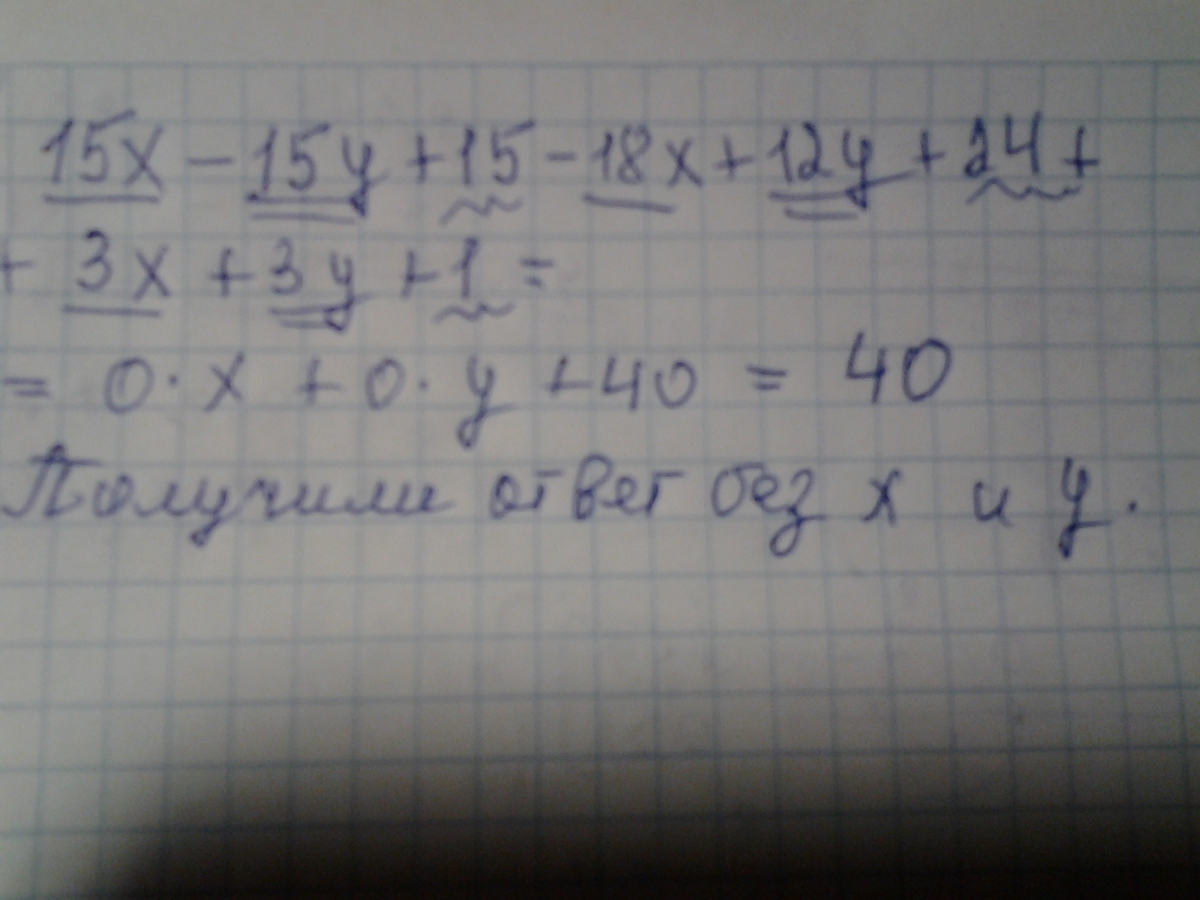 15x - 15y + 15 - 18x + 12y + 24 +
+ 3x + 3y + 1 =
= 0 · x + 0 · y + 40 = 40
Получили ответ без x и y.